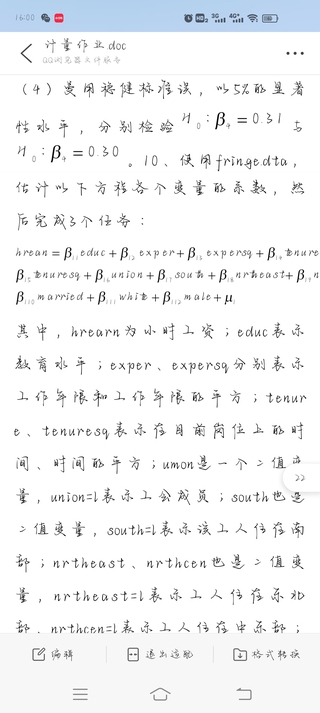 16:00
计量作业.doc
QQ浏览器文件服务
（4）是用稳健标准误，以5%的显著
性水平，分别检验 H₀：β₄ = 0.31 与
H₀：β₄ = 0.30 。10、使用fringe.dta，
估计以下方程各个变量的系数，然
后完成3个任务：
hrearn = β₁₁educ + β₁₂exper + β₁₃expersq + β₁₄tenure
β₁₅tenuresq + β₁₆union + β₁₇south + β₁₈nrtheast + β₁₉n
β₁₁₀married + β₁₁₁white + β₁₁₂male + μᵢ
其中，hrearn为小时工资；educ表示
教育水平；exper、expersq分别表示
工作年限和工作年限的平方；tenur
e、tenuresq表示在目前岗位上的时
间、时间的平方；umon是一个二值变
量，union=1表示工会成员；south也是
二值变量，south=1表示该工人住在南
部；nrtheast、nrthcen也是二值变
量，nrtheast=1表示工人住在东北
部，nrthcen=1表示工人住在中东部；
编辑 退出适配 格式转换